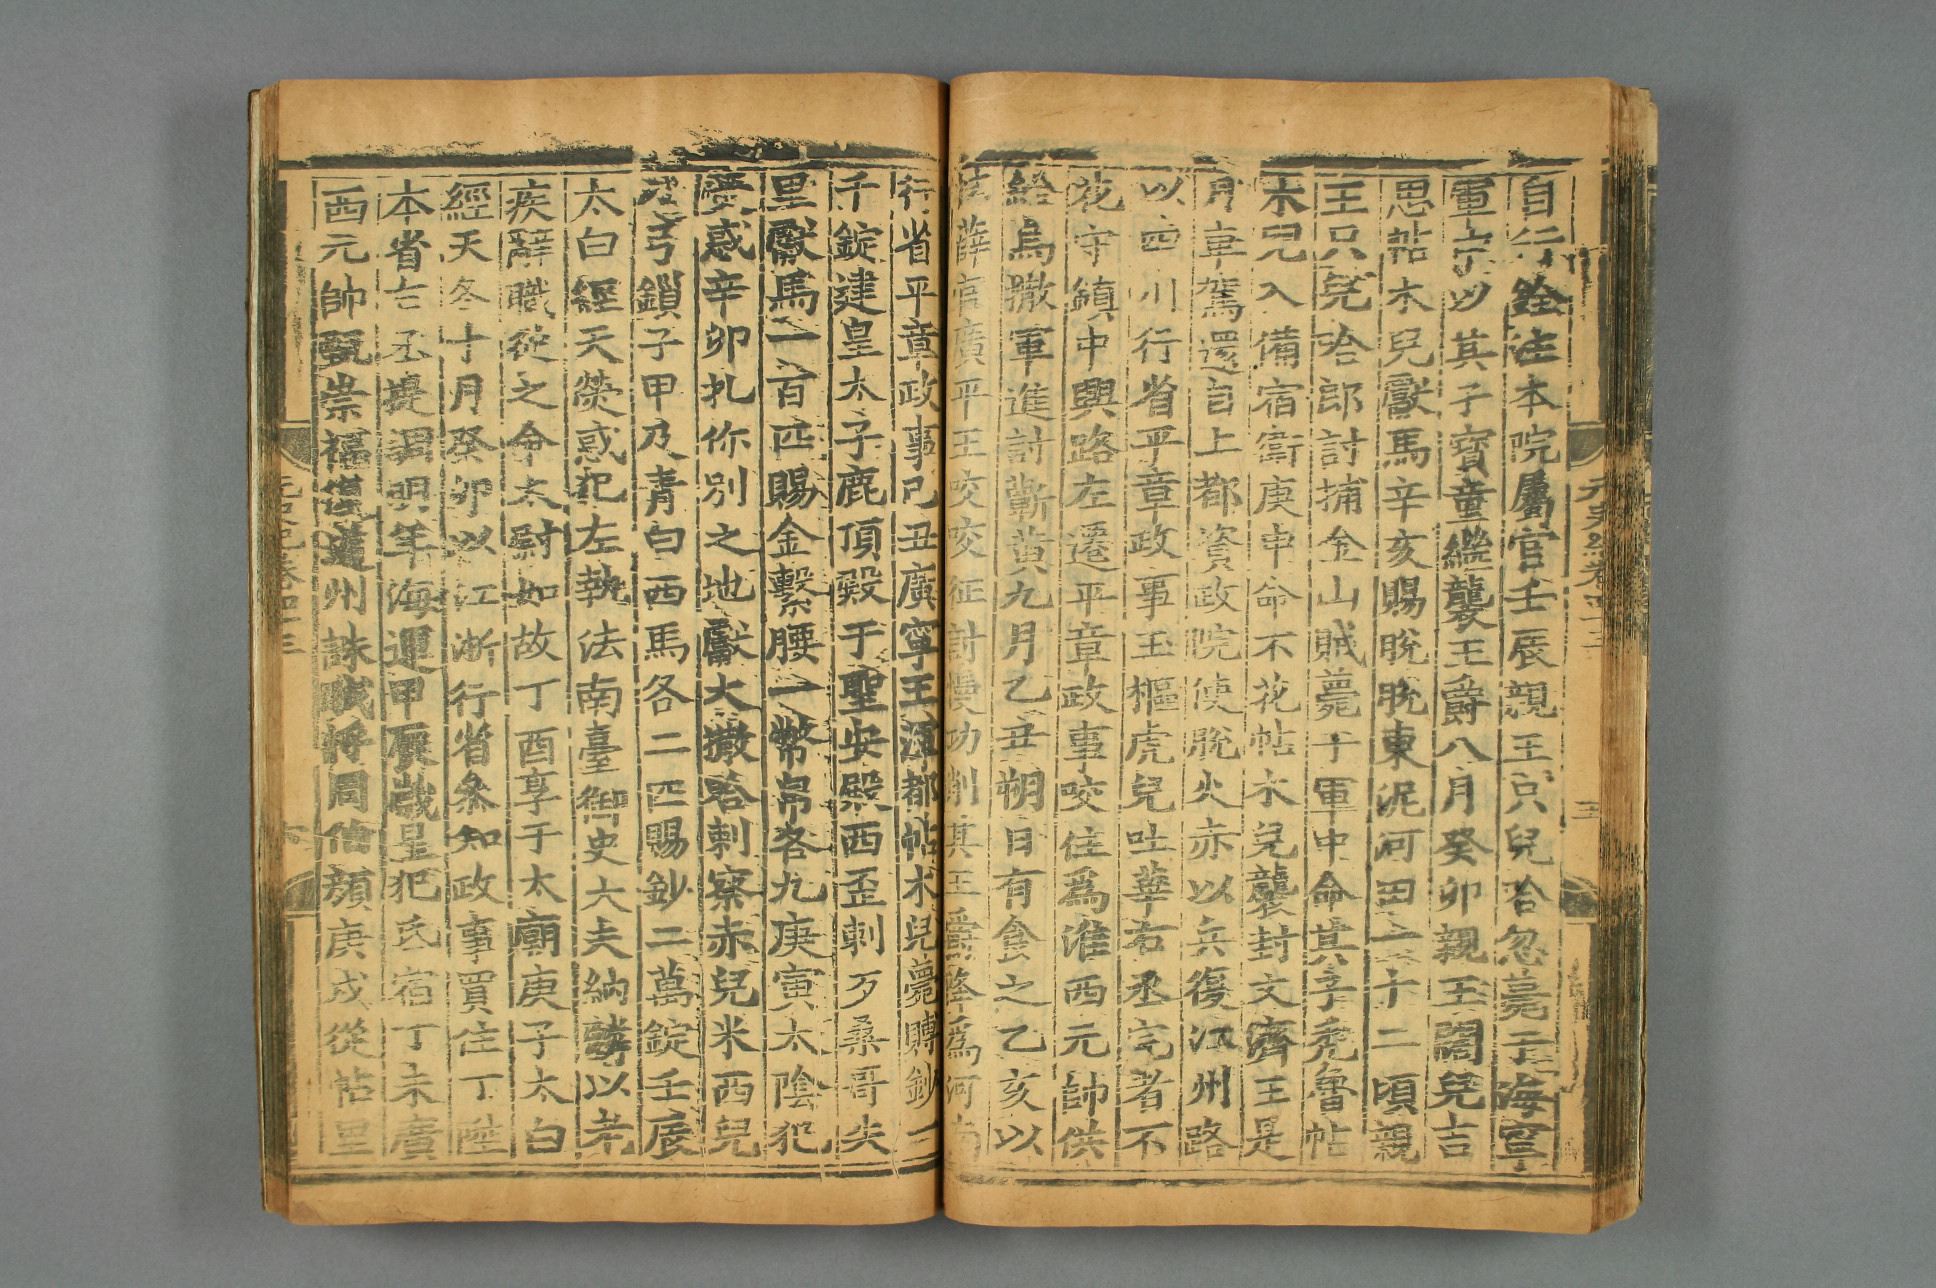 自行銓注本院屬官壬辰親王只兒哈忽薨于海寧
軍宗以其子寶童繼襲王爵八月癸卯親王闊兒吉
思帖木兒獻馬辛亥賜脫脫東泥河田一十二頃親
王只兒哈郎討捕金山賊薨于軍中命其子禿魯帖
木兒入備宿衛庚申命不花帖木兒襲封文濟王是
月車駕還自上都資政院使脫火赤以兵復江州路
以四川行省平章政事玉樞虎兒吐華右丞完者不
花守鎮中興路左遷平章政事咬住爲淮西元帥供
給烏撒軍進討蘄黄九月乙丑朔日有食之乙亥以
怯薛官廣平王咬咬征討慢功削其王爵降爲河南
行省平章政事己丑廣寧王渾都帖木兒薨賻鈔一
千錠建皇太子鹿頂殿于聖安殿西歪剌歹桑哥失
里獻馬一百匹賜金繫腰一幣帛各九庚寅太陰犯
熒惑辛卯扎你別之地獻大撒哈剌察赤兒米西兒
刀弓鎖子甲及青白西馬各二匹賜鈔二萬錠壬辰
太白經天熒惑犯左執法南臺御史大夫納麟以老
疾辭職從之命太尉如故丁酉享于太廟庚子太白
經天冬十月癸卯以江浙行省叅知政事買住丁陞
本省右丞提調明年海運甲辰歲星犯氐宿丁未廣
西元帥甄崇福復道州誅賊將周伯顔庚戌從帖里
元史紀卷四十三
三
元史紀卷四十三